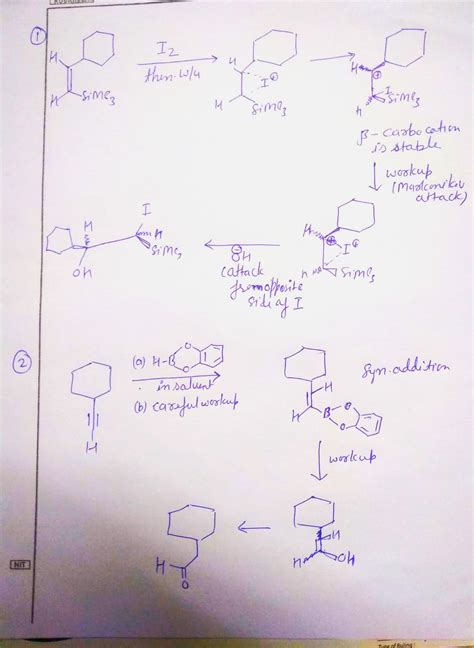 ①
H
I₂
then w/u
H
SiMe₃
H
I⊕
H
SiMe₃
H
⊕
I
H
SiMe₃
β-carbocation
is stable
workup
(Markonikov
attack)
H
⊕
I⊕
H
SiMe₃
⊖
OH
(attack
from opposite
side of I
H
I
H
SiMe₃
OH
②
(a) H-B
O
O
in solvent
(b) careful workup
H
H
H
B
O
O
Syn.addition
workup
H
H
OH
H
O
NIT